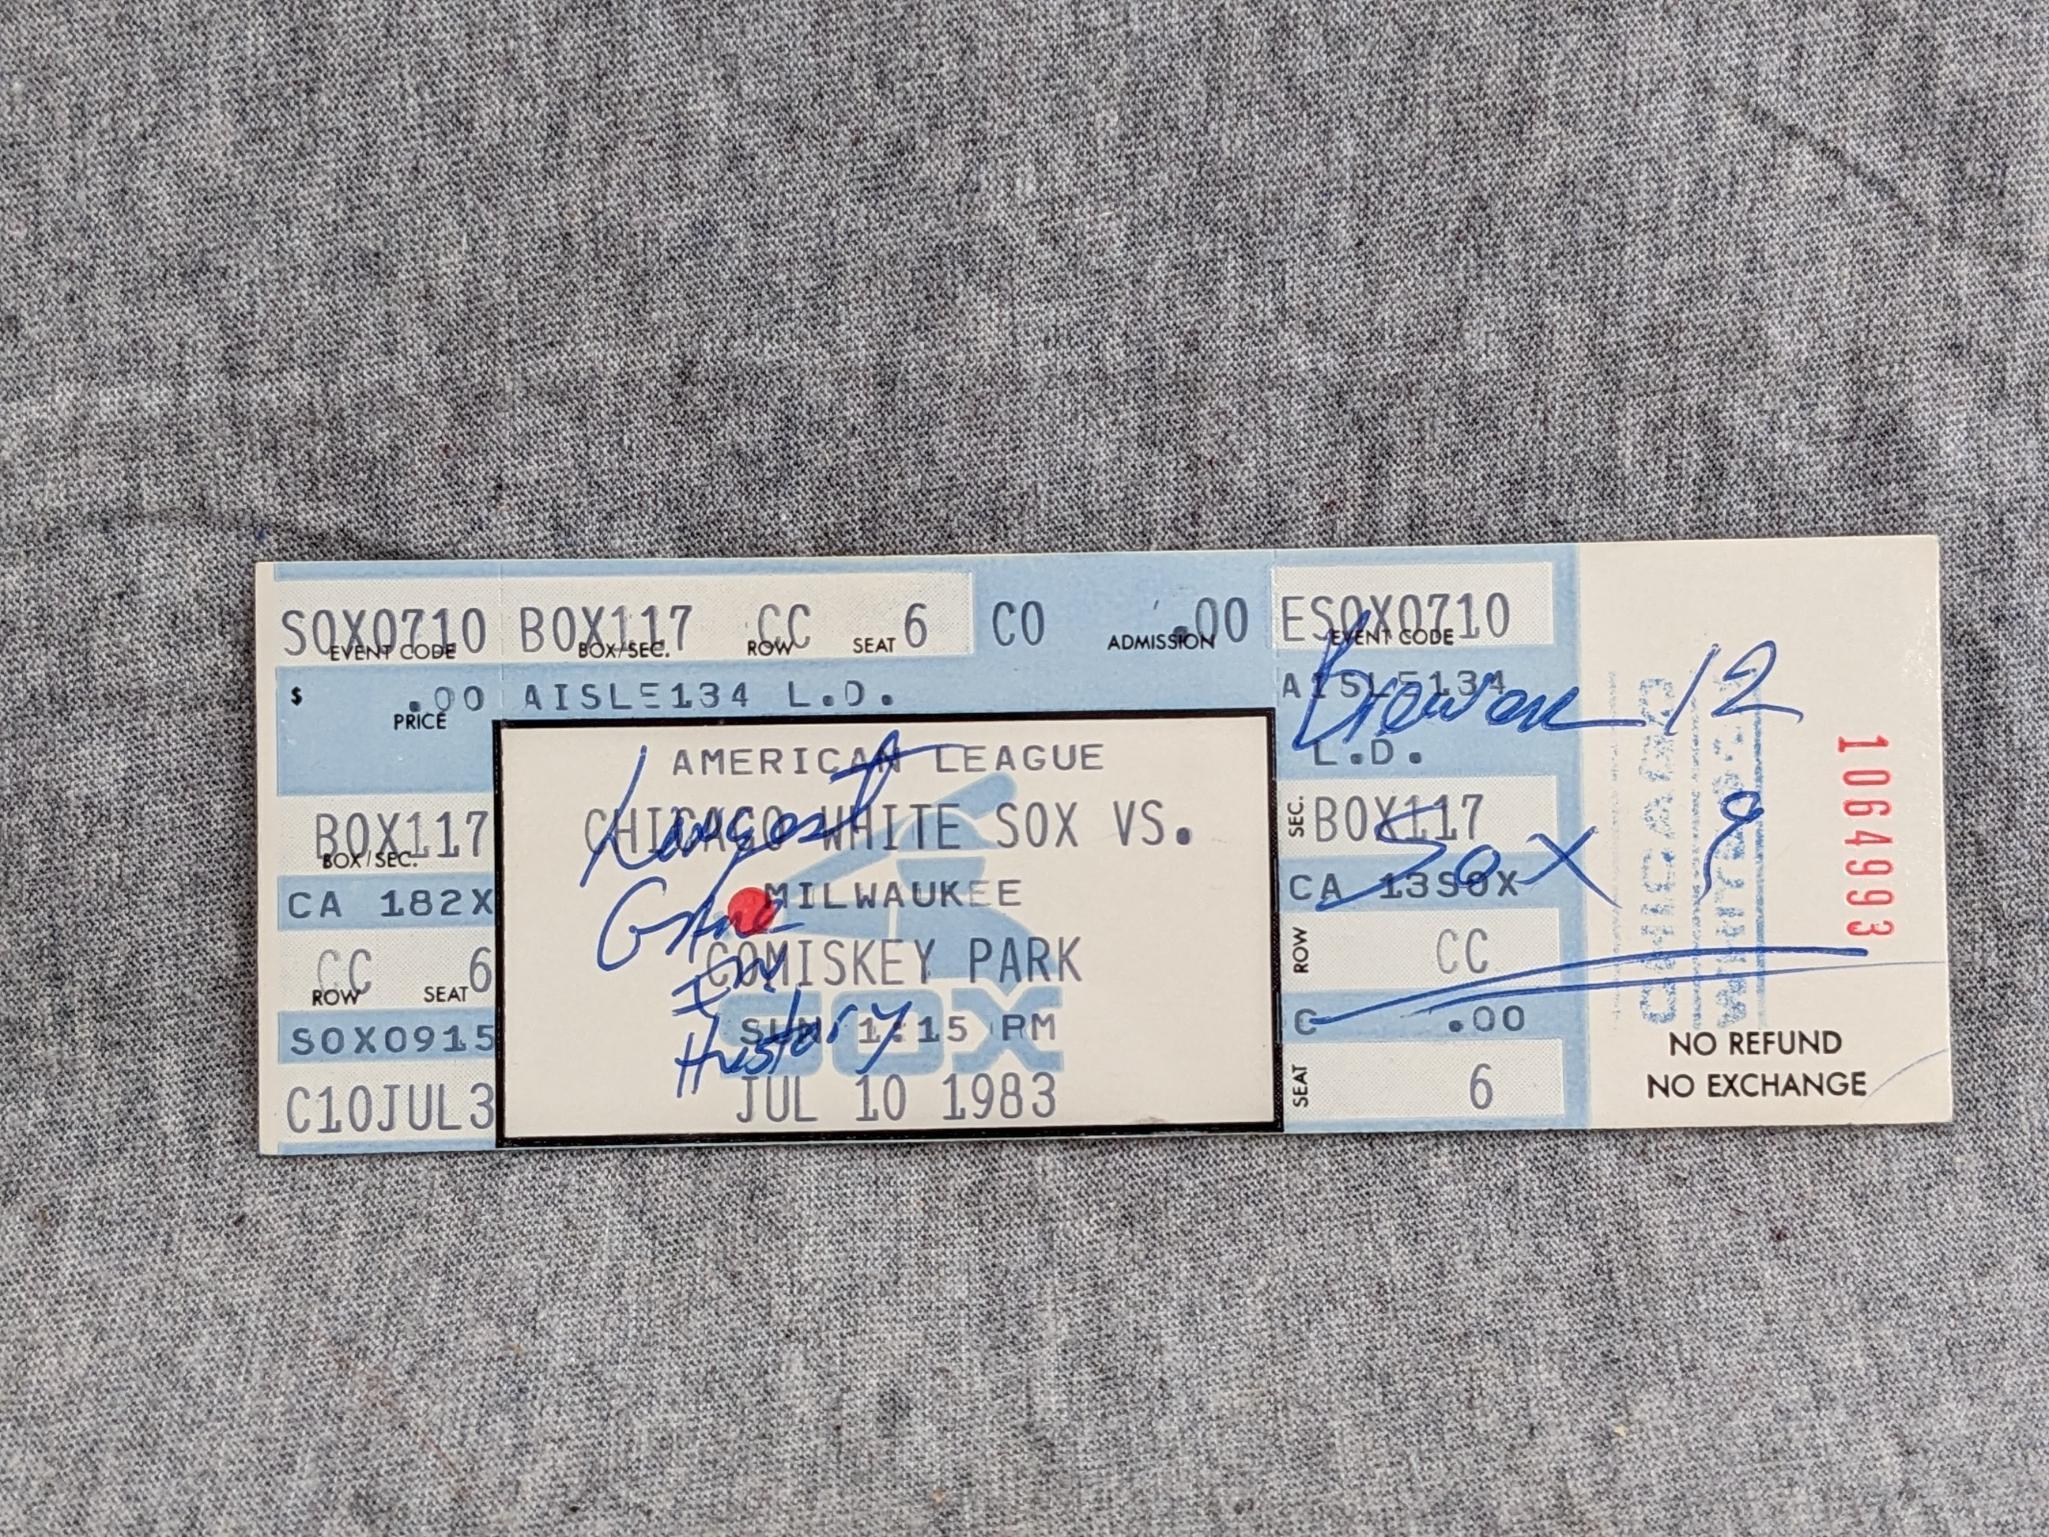 SOX0710 BOX117 CC 6 CO .00 ESOX0710
EVENT CODE BOX/SEC. ROW SEAT ADMISSION EVENT CODE
$ .00 AISLE134 L.D. AISLE134
PRICE
L.D.
Brewers 12
AMERICAN LEAGUE
CHICAGO WHITE SOX VS.
MILWAUKEE
COMISKEY PARK
SOX
SUN 1:15 PM
JUL 10 1983
Longest
Game
In
History
BOX117
BOX/SEC.
CA 182X
CC 6
ROW SEAT
SOX0915
C10JUL3
SEC. BOX117
Sox 9
CA 13SOX
ROW CC
C .00
SEAT 6
1064993
NO REFUND
NO EXCHANGE